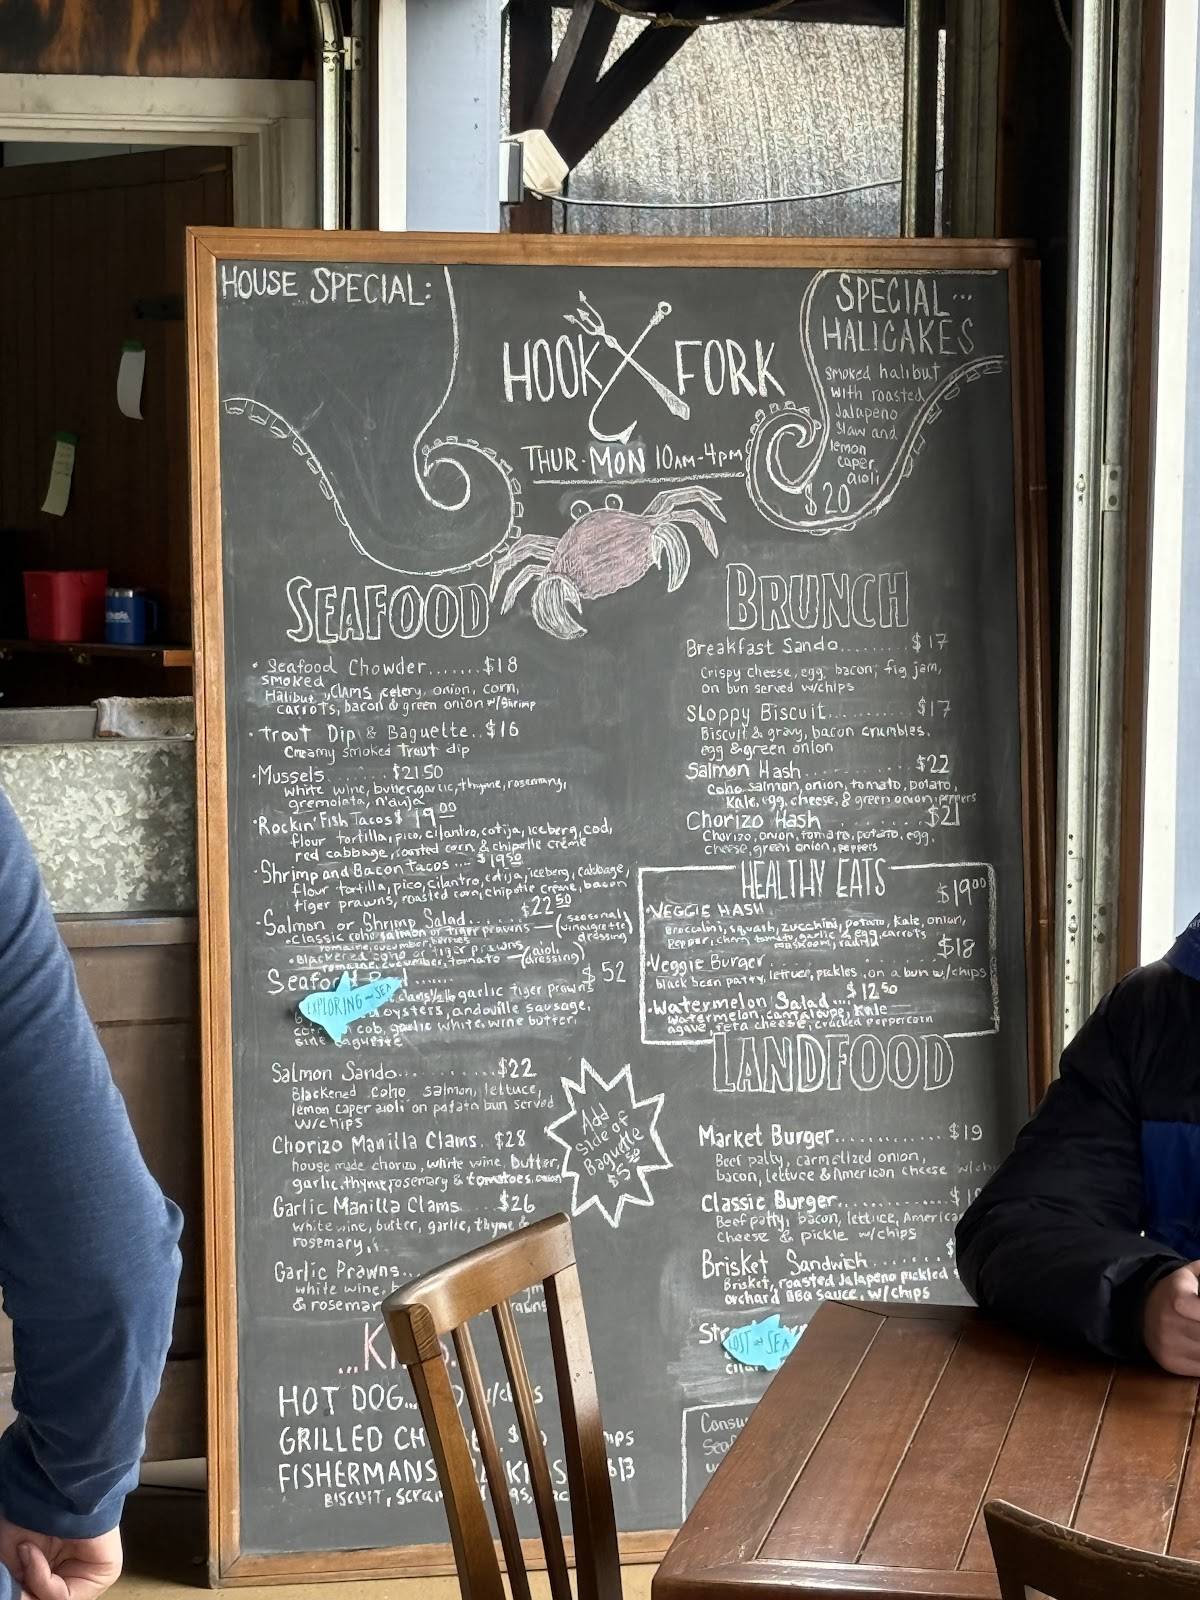 HOUSE SPECIAL:
HOOK FORK
THUR-MON 10AM-4PM
SPECIAL...
HALICAKES
smoked halibut
with roasted
Jalapeno
slaw and
lemon
caper
aioli
$20
SEAFOOD
· Seafood Chowder.......$18
smoked
Halibut, Clams, celery, onion, corn,
carrots, bacon & green onion w/shrimp
· Trout Dip & Baguette..$16
Creamy smoked Trout dip
· Mussels........$21.50
white wine, butter, garlic, thyme, rosemary,
gremolata, n'duja
· Rockin' Fish Tacos $19.00
flour tortilla, pico, cilantro, cotija, iceberg, cod,
red cabbage, roasted corn & chipotle créme
· Shrimp and Bacon Tacos .... $19.50
flour tortilla, pico, cilantro, cotija, iceberg, cabbage,
tiger prawns, roasted corn, chipotle créme, bacon
· Salmon or Shrimp Salad...... $22.50
· Classic coho salmon or tiger prawns — (seasonal vinaigrette dressing)
romaine, cucumber, berries
· Blackened coho or tiger prawns (aioli dressing)
romaine, cucumber, tomato
Seafood ...... $52
EXPLORING SEA
clams 1/2 lb garlic tiger prawns
oysters, andouille sausage,
cob, garlic white wine butter,
side baguette
Salmon Sando...........$22
Blackened coho salmon, lettuce,
lemon caper aioli on potato bun served
w/chips
Chorizo Manilla Clams. $28
house made chorizo, white wine, butter,
garlic, thyme, rosemary & tomatoes, onion
Garlic Manilla Clams ...$26
white wine, butter, garlic, thyme &
rosemary
Garlic Prawns...
white wine,
& rosemary
Add
side of
Baguette
$5.50
HOT DOG...
GRILLED CH
FISHERMANS $13
BISCUIT,
BRUNCH
Breakfast Sando........$17
Crispy cheese, egg, bacon, fig jam,
on bun served w/chips
Sloppy Biscuit..........$17
Biscuit & gravy, bacon crumbles,
egg & green onion
Salmon Hash............$22
Coho salmon, onion, tomato, potato,
Kale, egg, cheese, & green onion, peppers
Chorizo Hash ..........$21
Chorizo, onion, tomato, potato, egg,
cheese, green onion, peppers
HEALTHY EATS
VEGGIE HASH $19.00
Broccolini, squash, zucchini, potato, kale, onion,
Pepper, cherry tomato, garlic & egg, carrots
mushroom, radish
· Veggie Burger........ $18
black bean patty, lettuce, pickles, on a bun w/chips
· Watermelon Salad.... $12.50
Watermelon, cantaloupe, Kale
agave, feta cheese, cracked peppercorn
LANDFOOD
Market Burger............$19
Beef patty, carmelized onion,
bacon, lettuce & American cheese
Classic Burger..........
Beef patty, bacon, lettuce, America
cheese & pickle w/chips
Brisket Sandwich......
Brisket, roasted Jalapeno pickled
orchard BBQ sauce, w/chips
LOST at SEA
Consu
Seaf